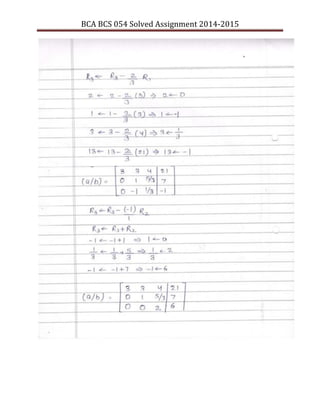 BCA BCS 054 Solved Assignment 2014-2015
R₃ ← R₃ - 2/3 R₁
2 ← 2 - 2/3 (3) ⇒ 2 ← 0
1 ← 1 - 2/3 (3) ⇒ 1 ← -1
3 ← 3 - 2/3 (4) ⇒ 3 ← 1/3
13 ← 13 - 2/3 (21) ⇒ 13 ← -1
(a/b) = [ 3 3 4 | 21
0 1 5/3 | 7
0 -1 1/3 | -1 ]
R₃ ← R₃ - (-1)/1 R₂
R₃ ← R₃ + R₂
-1 ← -1+1 ⇒ 1 ← 0
1/3 ← 1/3 + 5/3 ⇒ 1/3 ← 2
-1 ← -1+7 ⇒ -1 ← 6
(a/b) = [ 3 3 4 | 21
0 1 5/3 | 7
0 0 2 | 6 ]